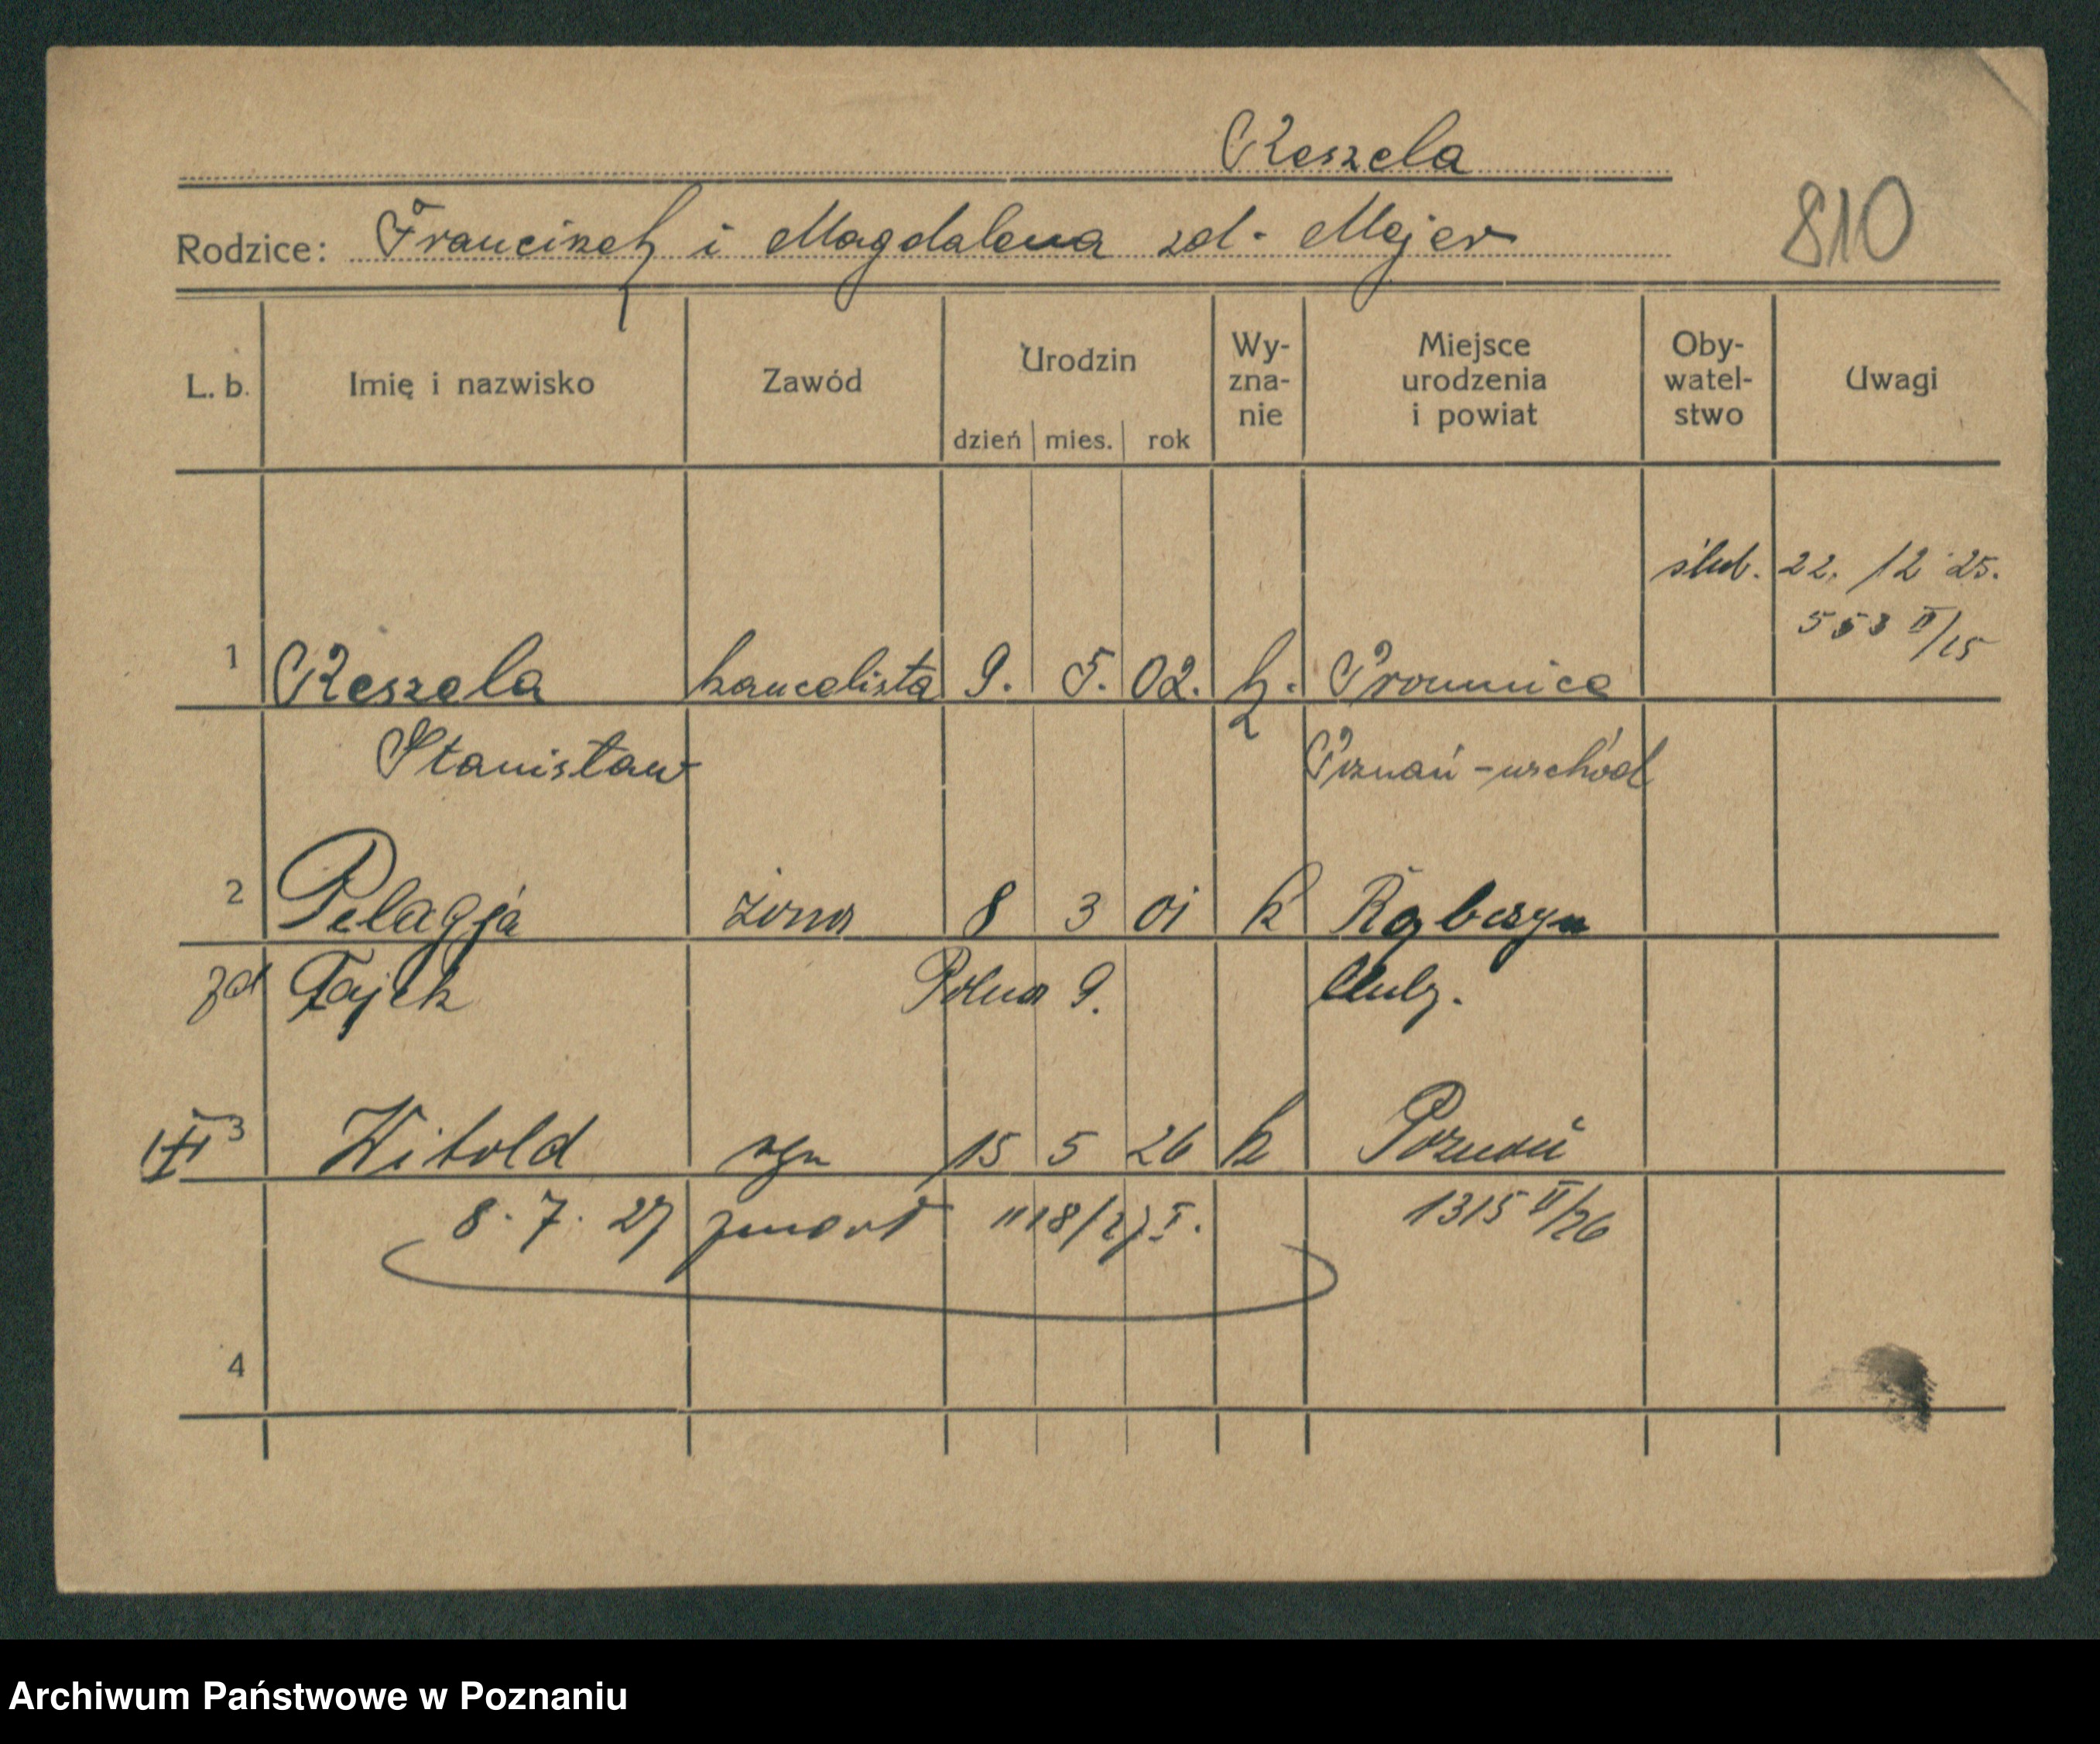 Reszela
810
Rodzice: Franciszek i Magdalena zd. Majer
L. b. Imię i nazwisko Zawód Urodzin dzień mies. rok Wy-zna-nie Miejsce urodzenia i powiat Oby-watel-stwo Uwagi
ślub. 22. 12 25.
553 II/15
1 Reszela kancelista 9. 5. 02. k. Promnice
Stanisław Poznań-wschód
2 Pelagja żona 8 3 01 k Rąbczyn
zd Fajek Polna 9.
3 Witold syn 15 5 26 k Poznań
8. 7. 27 zmarł 1118/27 I. 1315 II/26
4
Archiwum Państwowe w Poznaniu